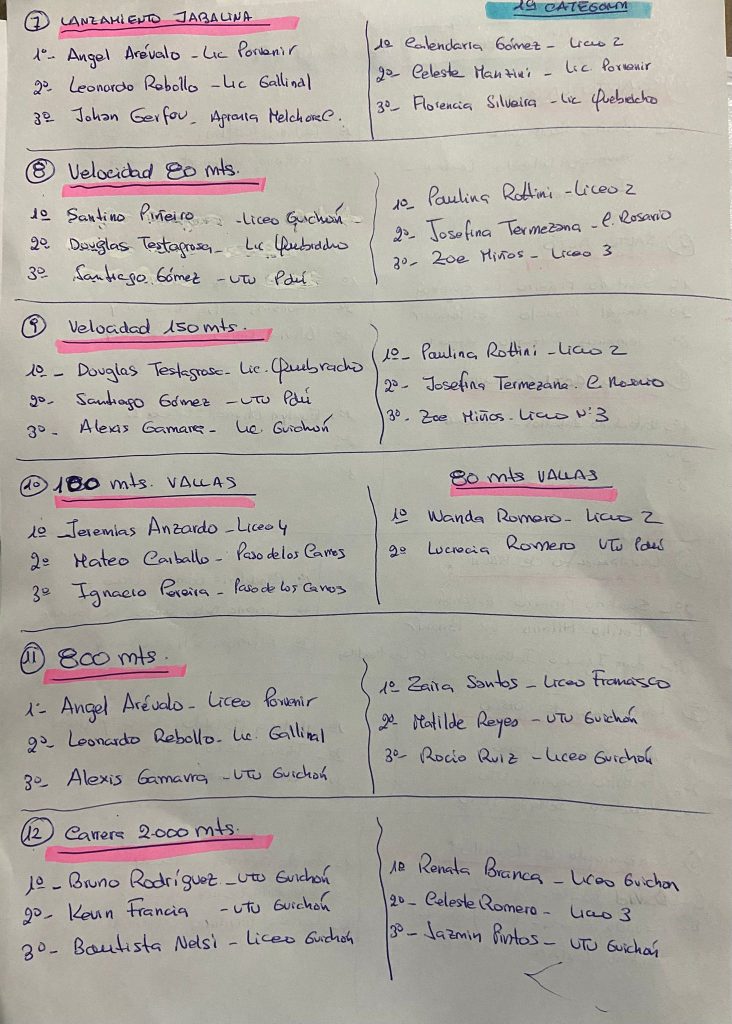 1ª CATEGORIA
7 LANZAMIENTO JABALINA
1º- Angel Arévalo - Lic Porvenir
2º- Leonardo Rebollo - Lic Gallinal
3º- Johan Gerfou - Agraria Melchora C.
1º Calendaria Gómez - Liceo 2
2º- Celeste Manzini - Lic. Porvenir
3º- Florencia Silveira - Lic Quebracho
8 Velocidad 80 mts.
1º Santino Piñeiro - Liceo Guichón
2º- Douglas Testagrosa - Lic Quebracho
3º- Santiago Gómez - UTU Pdú
1º- Paulina Rottini - Liceo 2
2º- Josefina Termezana - C. Rosario
3º- Zoe Miños - Liceo 3
9 Velocidad 150 mts.
1º - Douglas Testagrosa - Lic. Quebracho
2º- Santiago Gómez - UTU Pdú
3º- Alexis Gamarra - Lic. Guichón
1º- Paulina Rottini - Liceo 2
2º- Josefina Termezana. C. Rosario
3º- Zoe Miños - Liceo Nº3
10 100 mts. VALLAS
1º Jeremias Anzardo - Liceo 4
2º Mateo Carballo - Paso de los Carros
3º Ignacio Pereira - Paso de los Carros
80 mts VALLAS
1º Wanda Romero - Liceo 2
2º Lucrecia Romero UTU Pdú
11 800 mts.
1º- Angel Arévalo - Liceo Porvenir
2º- Leonardo Rebollo - Lic. Gallinal
3º- Alexis Gamarra - UTU Guichón
1º Zaira Santos - Liceo Francisco
2º- Matilde Reyes - UTU Guichón
3º- Rocio Ruiz - Liceo Guichón
12 Carrera 2.000 mts.
1º - Bruno Rodríguez - UTU Guichón
2º- Kevin Francia - UTU Guichón
3º- Bautista Nelsi - Liceo Guichón
1º Renata Branca - Liceo Guichon
2º- Celeste Romero - Liceo 3
3º- Jazmin Pintos - UTU Guichón